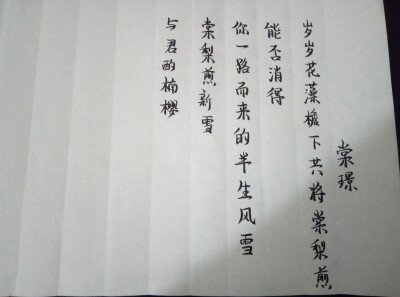 棠璟
岁岁花藻檐下共将棠梨煎
能否消得
你一路而来的半生风雪
棠梨煎新雪
与君酌楠樱